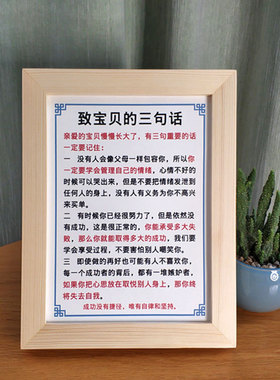 致宝贝的三句话
亲爱的宝贝慢慢长大了，有三句重要的话
一定要记住：
一　没有人会像父母一样包容你，所以你
一定要学会管理自己的情绪，心情不好的
时候可以哭出来，但是不要把情绪发泄到
任何人的身上，没有人有义务为你的不高
兴来买单。
二　有时候你已经很努力了，但是依然没
有成功，这是很正常的，你能承受多大失
败，那么你就能取得多大的成功，我们要
学会享受过程，不要害怕别人嘲笑你。
三　即使做的再好也可能有人不喜欢你，
每一个成功者的背后，都有一堆嫉妒者，
如果你把心思放在取悦别人身上，那你终
将失去自我。
成功没有捷径，唯有自律和坚持。